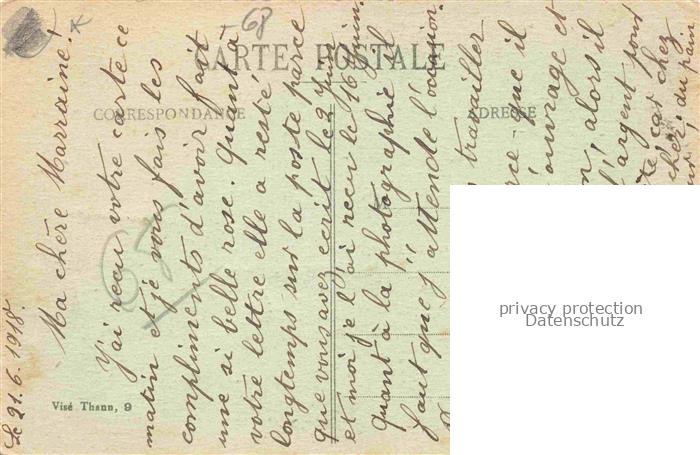 CARTE POSTALE
CORRESPONDANCE
ADRESSE
68
65
Visé Thann, 9
Le 21.6.1918.
Ma chère Marraine!
J'ai reçu votre carte ce
matin et je vous fais les
compliments d'avoir fait
une si belle rose. Quant à
votre lettre elle a resté
longtemps sur la poste parce
que vous avez ecrit le 2 Juin
et moi je l'ai reçu le 16 Juin.
Quant à la photographie il
faut que j'attende l'occasion.
travailler
que il
ouvrage et
alors il
l'argent pour
car chez
cher du pain
privacy protection
Datenschutz